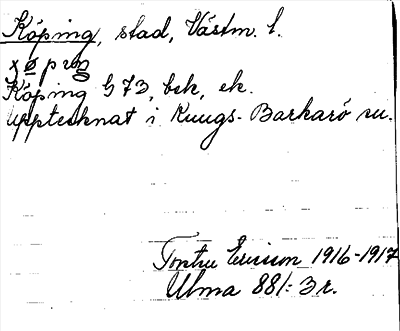 Köping, stad, Västm. l.
xøpıŋ
Köping G 73, bek, ek.
upptecknat i Kungs-Barkarö sn.
Torsten Ericson 1916-1917
Ulma 881:3 r.